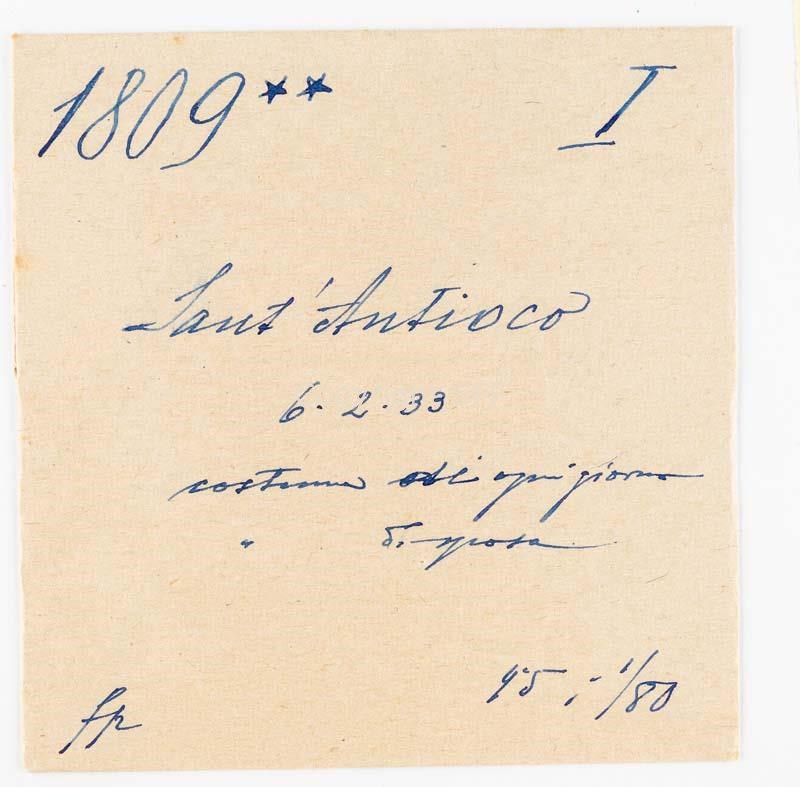 1809** I
Sant'Antioco
6.2.33
costume di ogni giorno
" di sposa
fp 4.5 ; 1/80